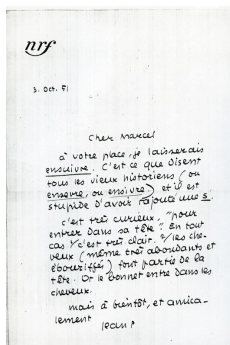 nrf
3. Oct. 51
Cher Marcel
à votre place, je laisserais
ensuivre. C'est ce que disent
tous les vieux historiens (ou
ensevre, ou ensivre) et il est
stupide d'avoir rajouté une s.
c'est très curieux, "pour
entrer dans sa tête". En tout
cas 1/ c'est très clair. 2/ les che-
veux (même très abondants et
ébouriffés) font partie de la
tête. Or le bonnet entre dans les
cheveux.
mais à bientôt, et amica-
lement
Jean P